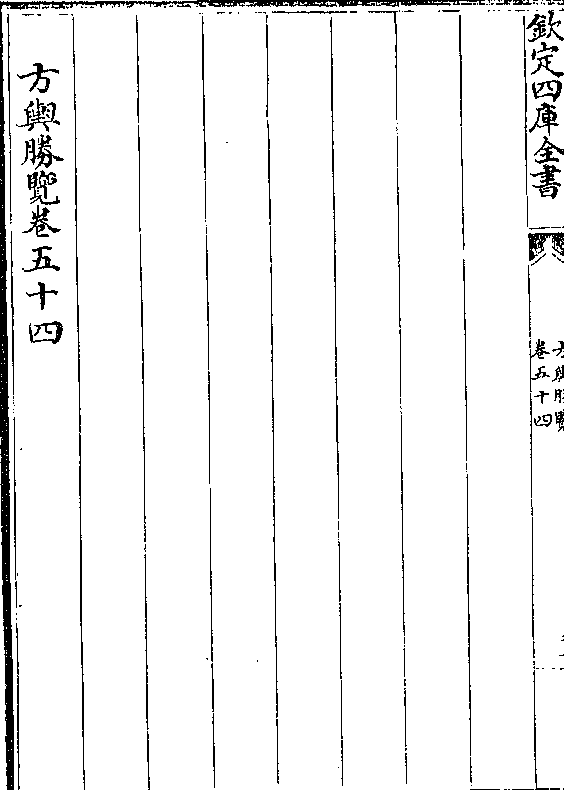 欽定四庫全書
方輿勝覽
卷五十四
方輿勝覽卷五十四